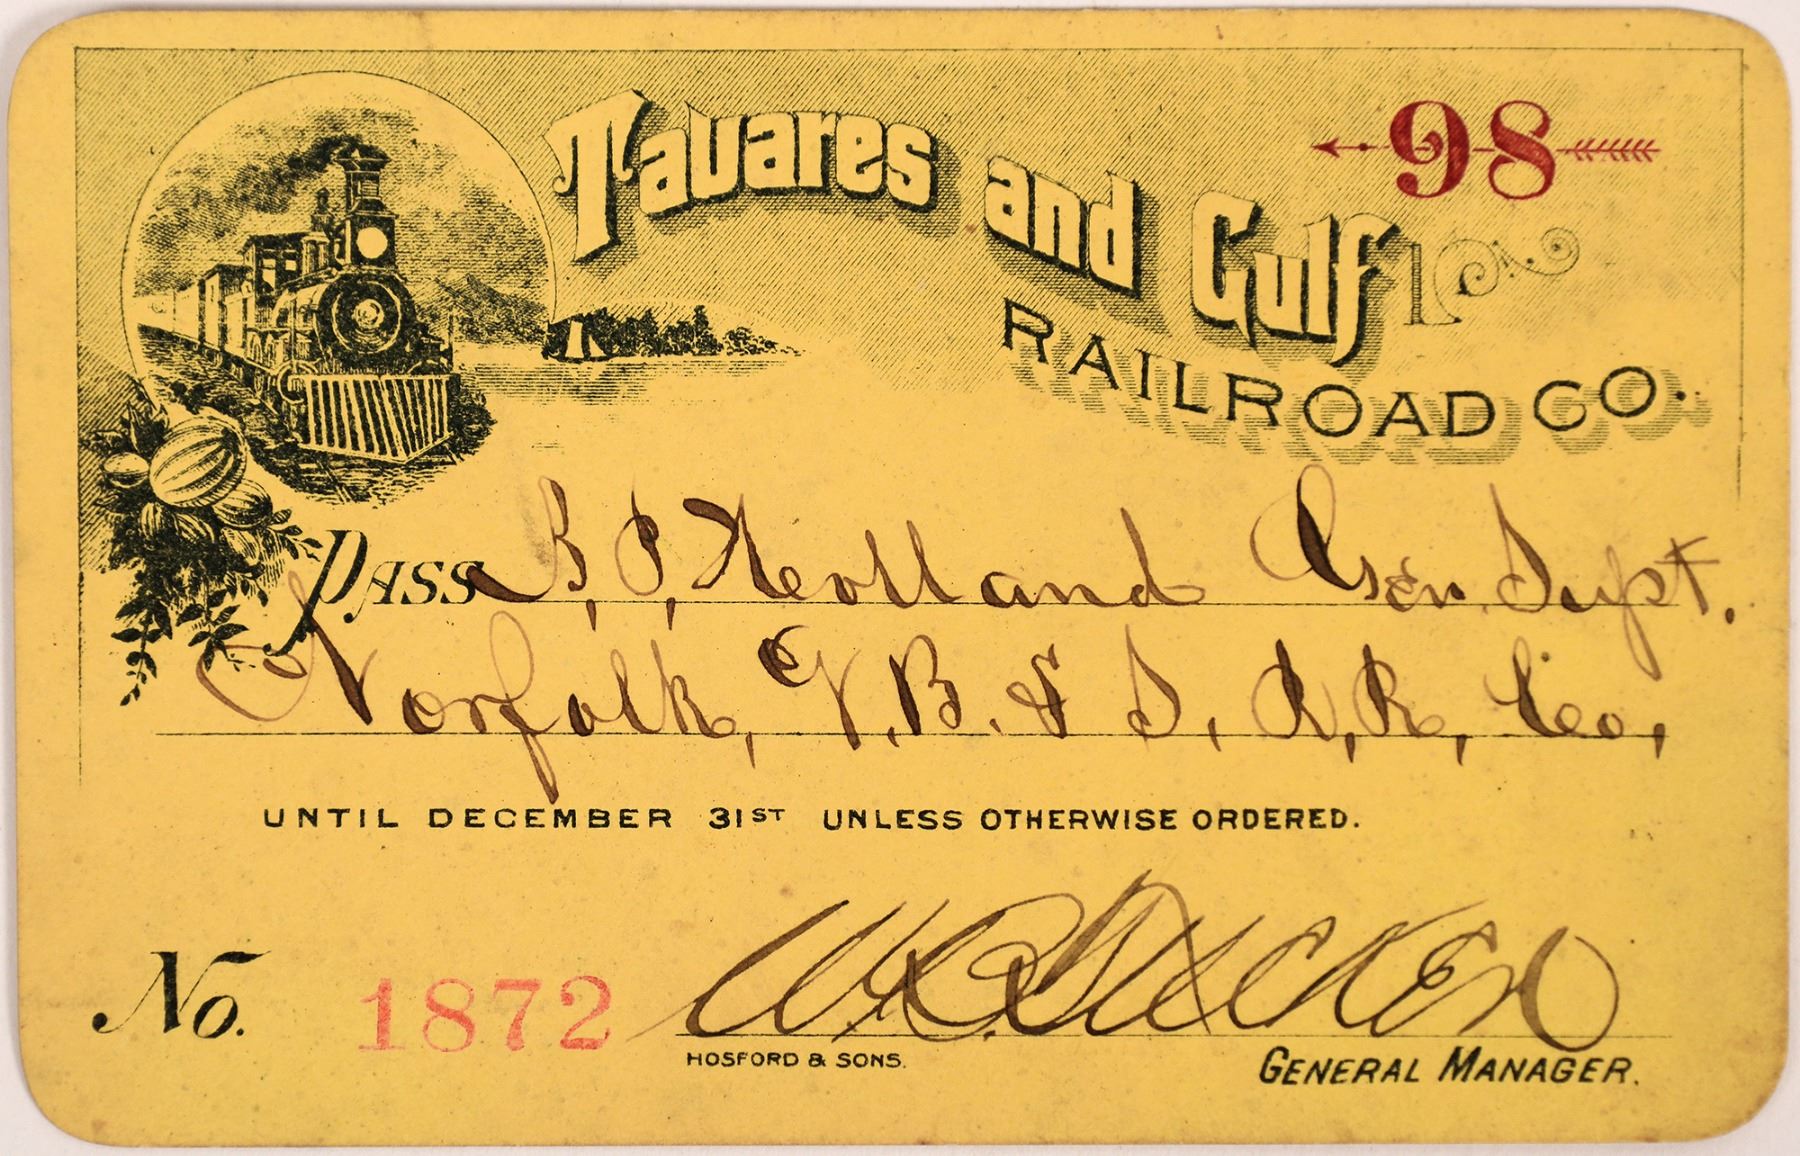 Tavares and Gulf
98
RAILROAD CO.
PASS B. P. Holland Gen. Supt.
Norfolk, V. B. & S. R. R. Co.,
UNTIL DECEMBER 31ST UNLESS OTHERWISE ORDERED.
No. 1872
HOSFORD & SONS.
GENERAL MANAGER.